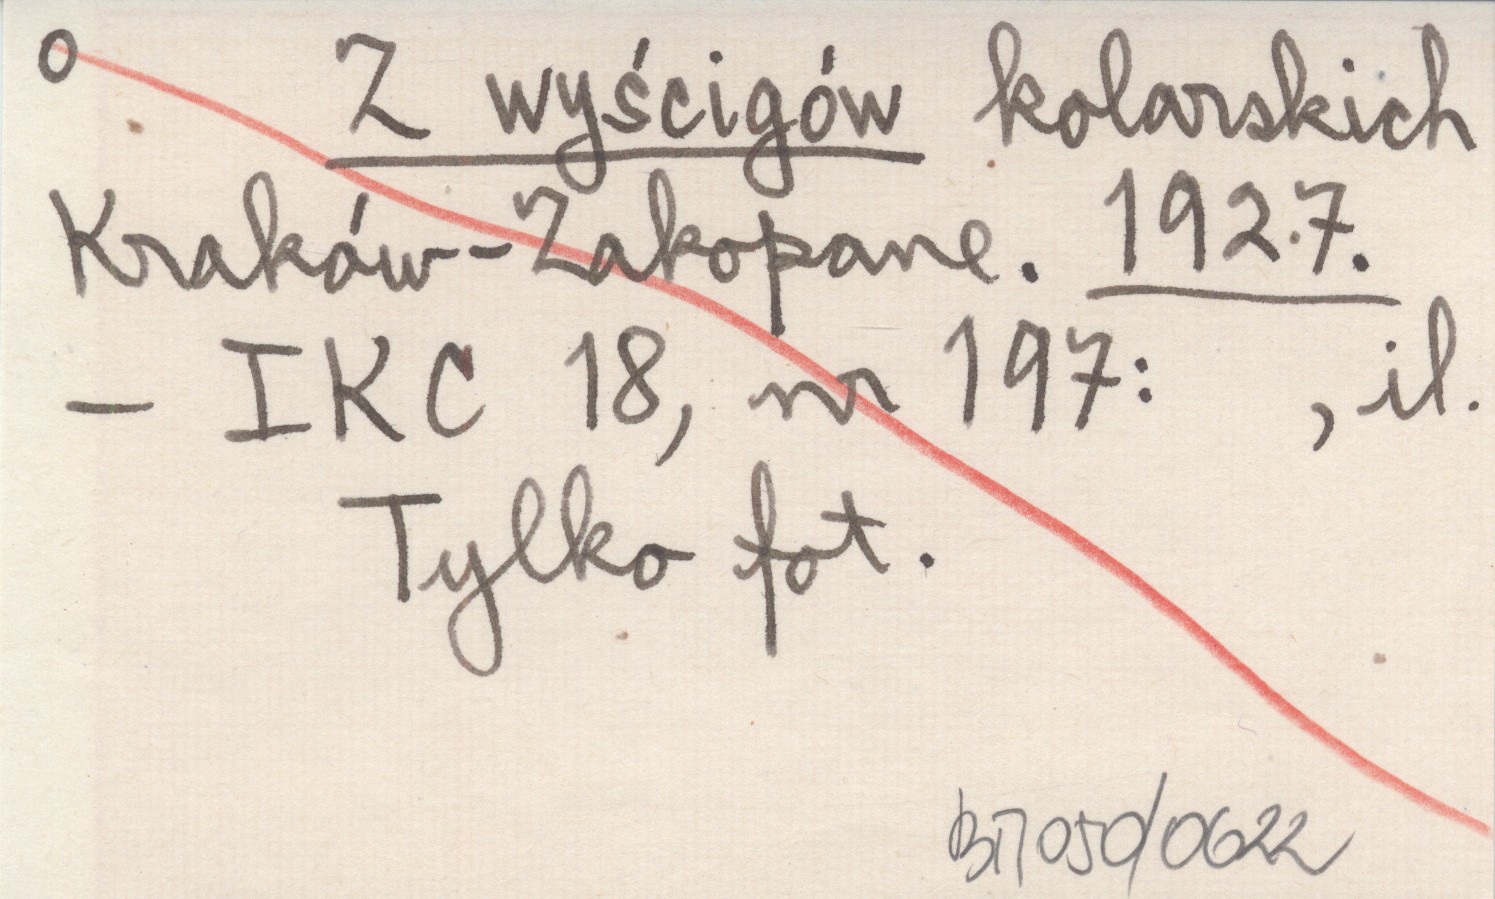 o Z wyścigów kolarskich
Kraków-Zakopane. 1927.
– IKC 18, nr 197: , il.
Tylko fot.
050/0622